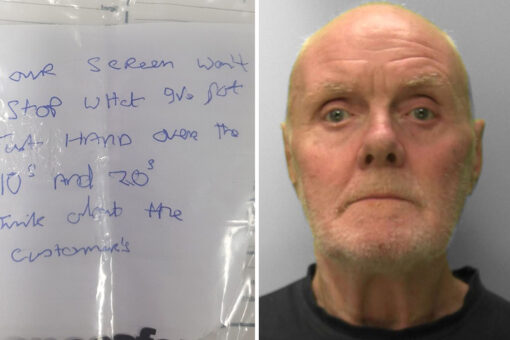 our screen won't
Stop what ive got
Just HAND over the
10s AND 20s
Think about the
customer's